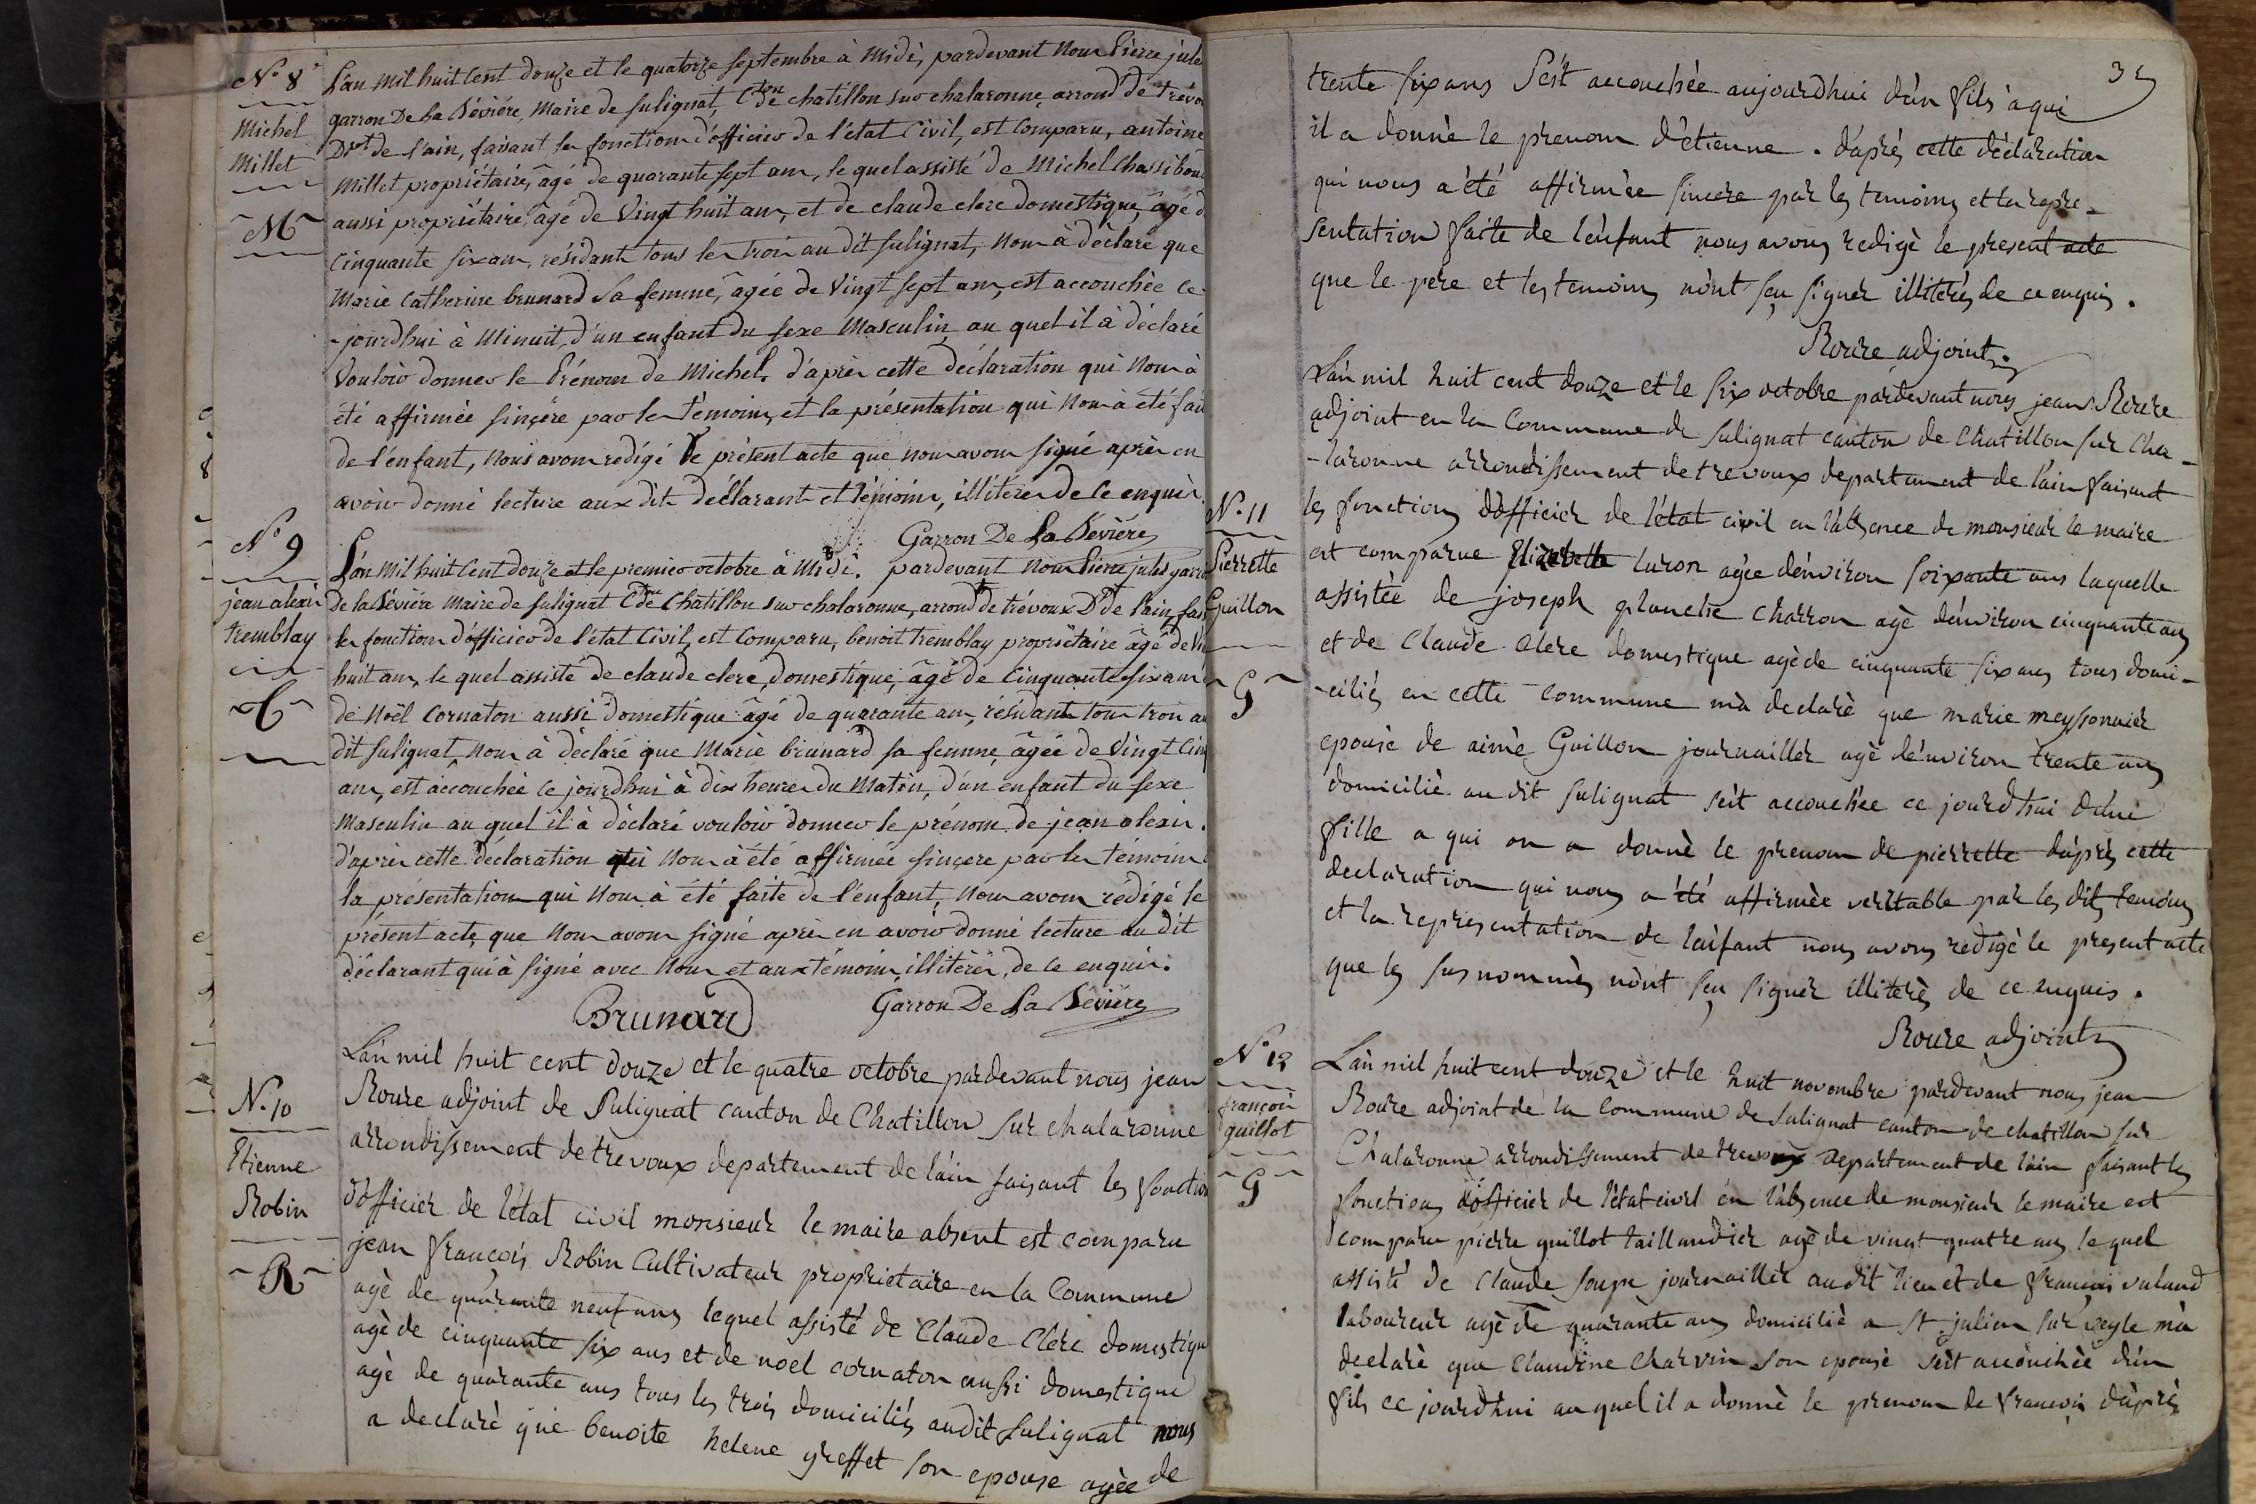 N° 8
Michel
Millet
M
L'an mil huit Cent douze et le quatorze septembre à Midi, pardevant Nous Pierre jules
garron De La Bévière, Maire de sulignat, C.ton de chatillon sur chalaronne, arrond.t de trévo
D.ent de l'ain, faisant les fonctions d'officier de l'état Civil, est Comparu, antoine
Millet propriétaire, âgé de quarante sept ans, le quel assisté de Michel
aussi propriétaire, âgé de Vingt huit ans, et de claude clere domestique, âgé d
Cinquante six ans, résidants tous les trois au dit sulignat, Nous à déclaré que
Marie Catherine brunard Sa femme, âgée de Vingt sept ans, est accouchée ce
-jourdhui à Minuit, d'un enfant du sexe Masculin, au quel il à déclaré
Vouloir donner le Prénom de Michel. d'après cette déclaration qui Nous à
été affirmée sinçère par les témoins, et la présentation qui Nous à été fai
de l'enfant, Nous avons rédigé le présent acte que nous avons signé après en
avoir donné lecture aux dits déclarant et témoins, illitérés de ce enquis.
Garron De La Bévière
N° 9
jean alexis
tremblay
T
L'an Mil huit Cent douze et le premier octobre à Midi. pardevant Nous Pierre jules garro
De la Bévière Maire de sulignat C.ton de Chatillon sur chalaronne, arrond.t de trévoux D.t de l'ain, fais
les fonctions d'officier de l'état Civil, est Comparu, benoit tremblay propriétaire âgé de Vi
huit ans, le quel assisté de claude clere, domestique, âgé de Cinquante six ans
de Noël Cornaton aussi domestique âgé de quarante ans, résidants tous trois au
dit sulignat, Nous à déclaré que Marie brunard sa femme, âgée de Vingt Cin
ans, est accouchée ce jourdhui à dix heures du Matin, d'un enfant du sexe
Masculin au quel il à déclaré vouloir donner le prénom de jean alexis.
d'après cette déclaration qui Nous à été affirmée sinçère par les témoins
la présentation qui Nous à été faite de l'enfant, Nous avons rédigé le
présent acte que Nous avons signé après en avoir donné lecture au dit
déclarant qui à signé avec Nous et aux témoins illitérés, de ce enquis.
Brunard Garron De La Bévière
N° 10
Etienne
Robin
R
L'an mil huit cent douze et le quatre octobre pardevant nous jean
Roure adjoint de Sulignat canton de Chatillon sur chalaronne
arrondissement de trevoux departement de l'ain faisant les fonction
d'officier de l'état civil monsieur le maire absent est comparu
jean françois Robin Cultivateur proprietaire en la Commune
agè de quarante neuf ans lequel assisté de Claude Clere domestiqu
agè de cinquante six ans et de noel cornaton aussi domestique
agè de quarante ans tous les trois domiciliés audit Sulignat nous
a declarè que benoite helene greffet son epouse agèe de
35
trente six ans s'est accouchèe aujourdhui d'un fils a qui
il a donnè le prenom d'étienne. d'aprés cette déclaration
qui nous a été affirmèe sincere par les temoins et la repre-
sentation faite de l'enfant nous avons redigè le present acte
que le pere et les temoins n'ont sçu signer illiterés de ce enquis.
Roure adjoint
N° 11
Pierrette
Guillon
G
L'an mil huit cent douze et le six octobre pardevant nous jean Roure
adjoint en la Commune de Sulignat canton de Chatillon sur Cha-
-laronne arrondissement de trevoux departement de l'ain faisant
les fonctions d'officier de l'état civil en l'absence de monsieur le maire
est comparue Elizabette luron agée d'environ soixante ans laquelle
assistée de joseph planche charron agè d'environ cinquante ans
et de Claude Clere domestique agè de cinquante six ans tous domi-
-ciliés en cette commune m'a declarè que marie meyssonnier
epouse de aimè Guillon journailler agè d'environ trente ans
domicilié au dit Sulignat s'est accouchée ce jourdhui d'une
fille a qui on a donnè le prenom de pierrette d'aprés cette
declaration qui nous a été affirmèe veritable par les dits temoins
et la representation de l'enfant nous avons redigè le present acte
que les sus nommès n'ont sçu signer illiterès de ce enquis.
Roure adjoint
N° 12
françois
guillot
G
L'an mil huit cent douze et le huit novembre pardevant nous jean
Roure adjoint de la Commune de Sulignat canton de chatillon sur
Chalaronne arrondissement de trevoux departement de l'ain faisant les
fonctions d'officier de l'état civil en l'absence de monsieur le maire est
comparu pierre guillot taillandier agè de vingt quatre ans le quel
assisté de Claude soupe journailler audit lieu et de françois valand
laboureur agè de quarante ans domicilié a st julien sur veyle m'a
declarè que Claudine Charvin son epouse s'est accouchée d'un
fils ce jourdhui au quel il a donnè le prenom de françois d'aprés